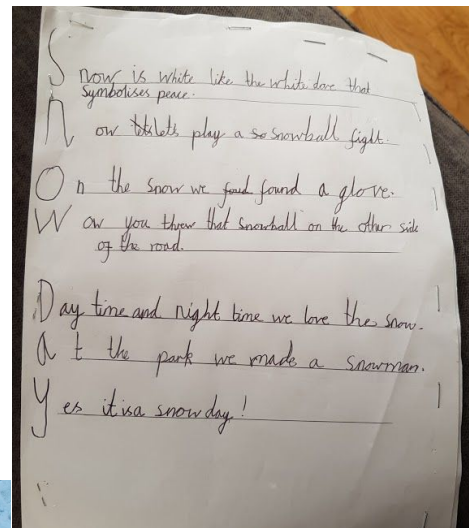 Snow is white like the white dove that
symbolises peace.
now lets play a snowball fight.
On the snow we found a glove.
Wow you threw that snowball on the other side
of the road.
Day time and night time we love the snow.
at the park we made a snowman.
Yes it is a snow day!